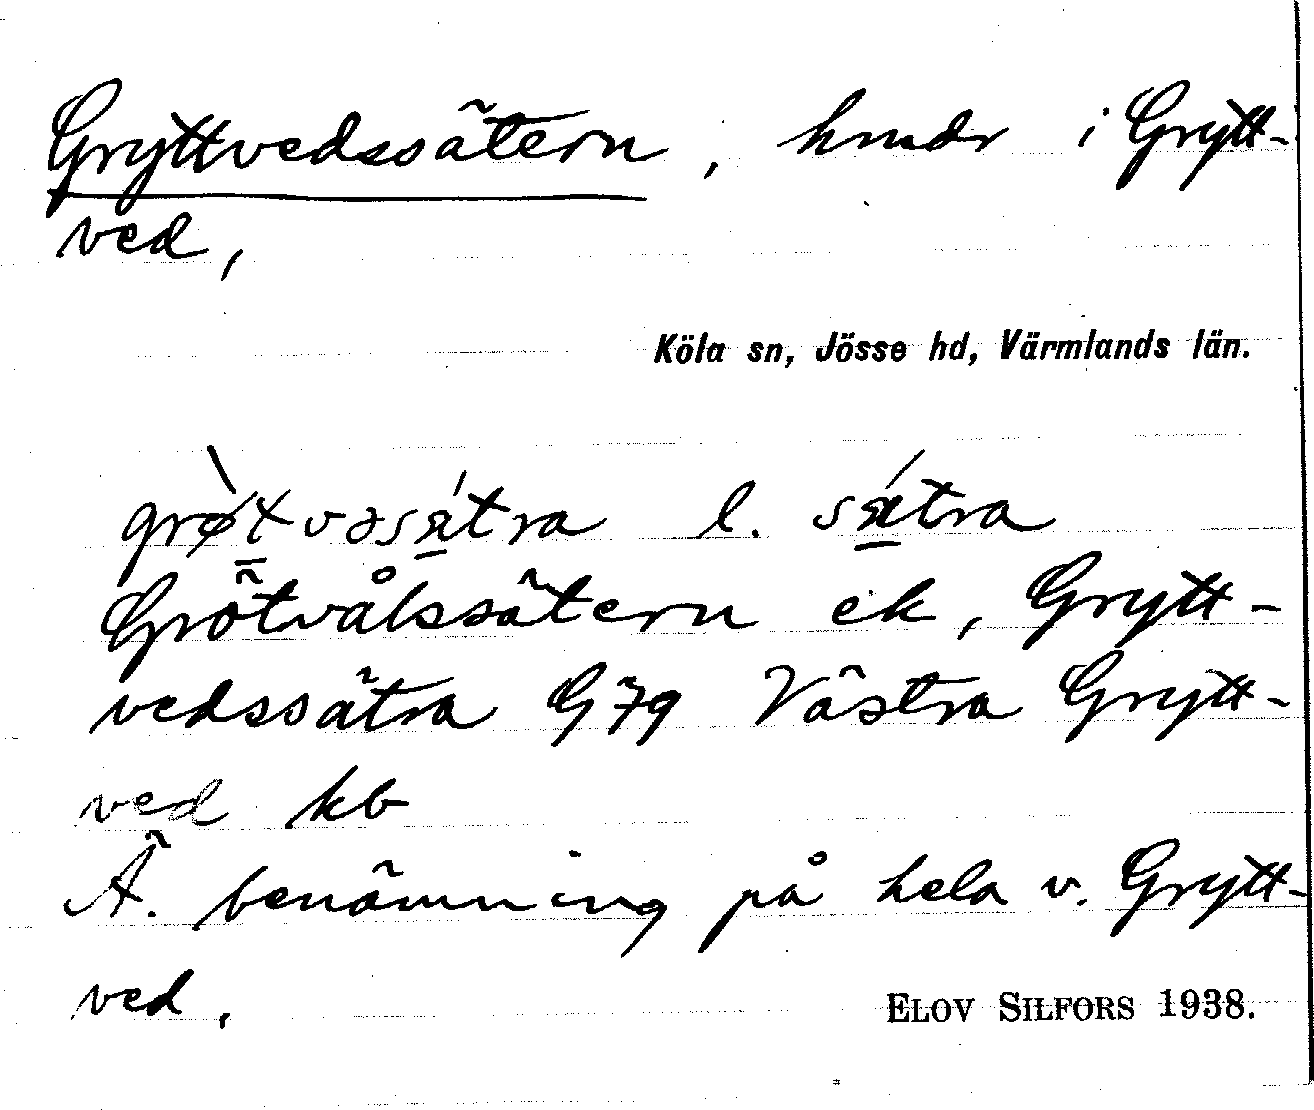 Gryttvedssätern, hmdr i Grytt-
ved,
Köla sn, Jösse hd, Värmlands län.
grø̀tvəsä́tra l. sä́tra
Grötvålssätern ek, Grytt-
vedssätra G79 Västra Grytt-
ved kb
Ä. benämning på hela v. Grytt-
ved.
ELOV SILFORS 1938.